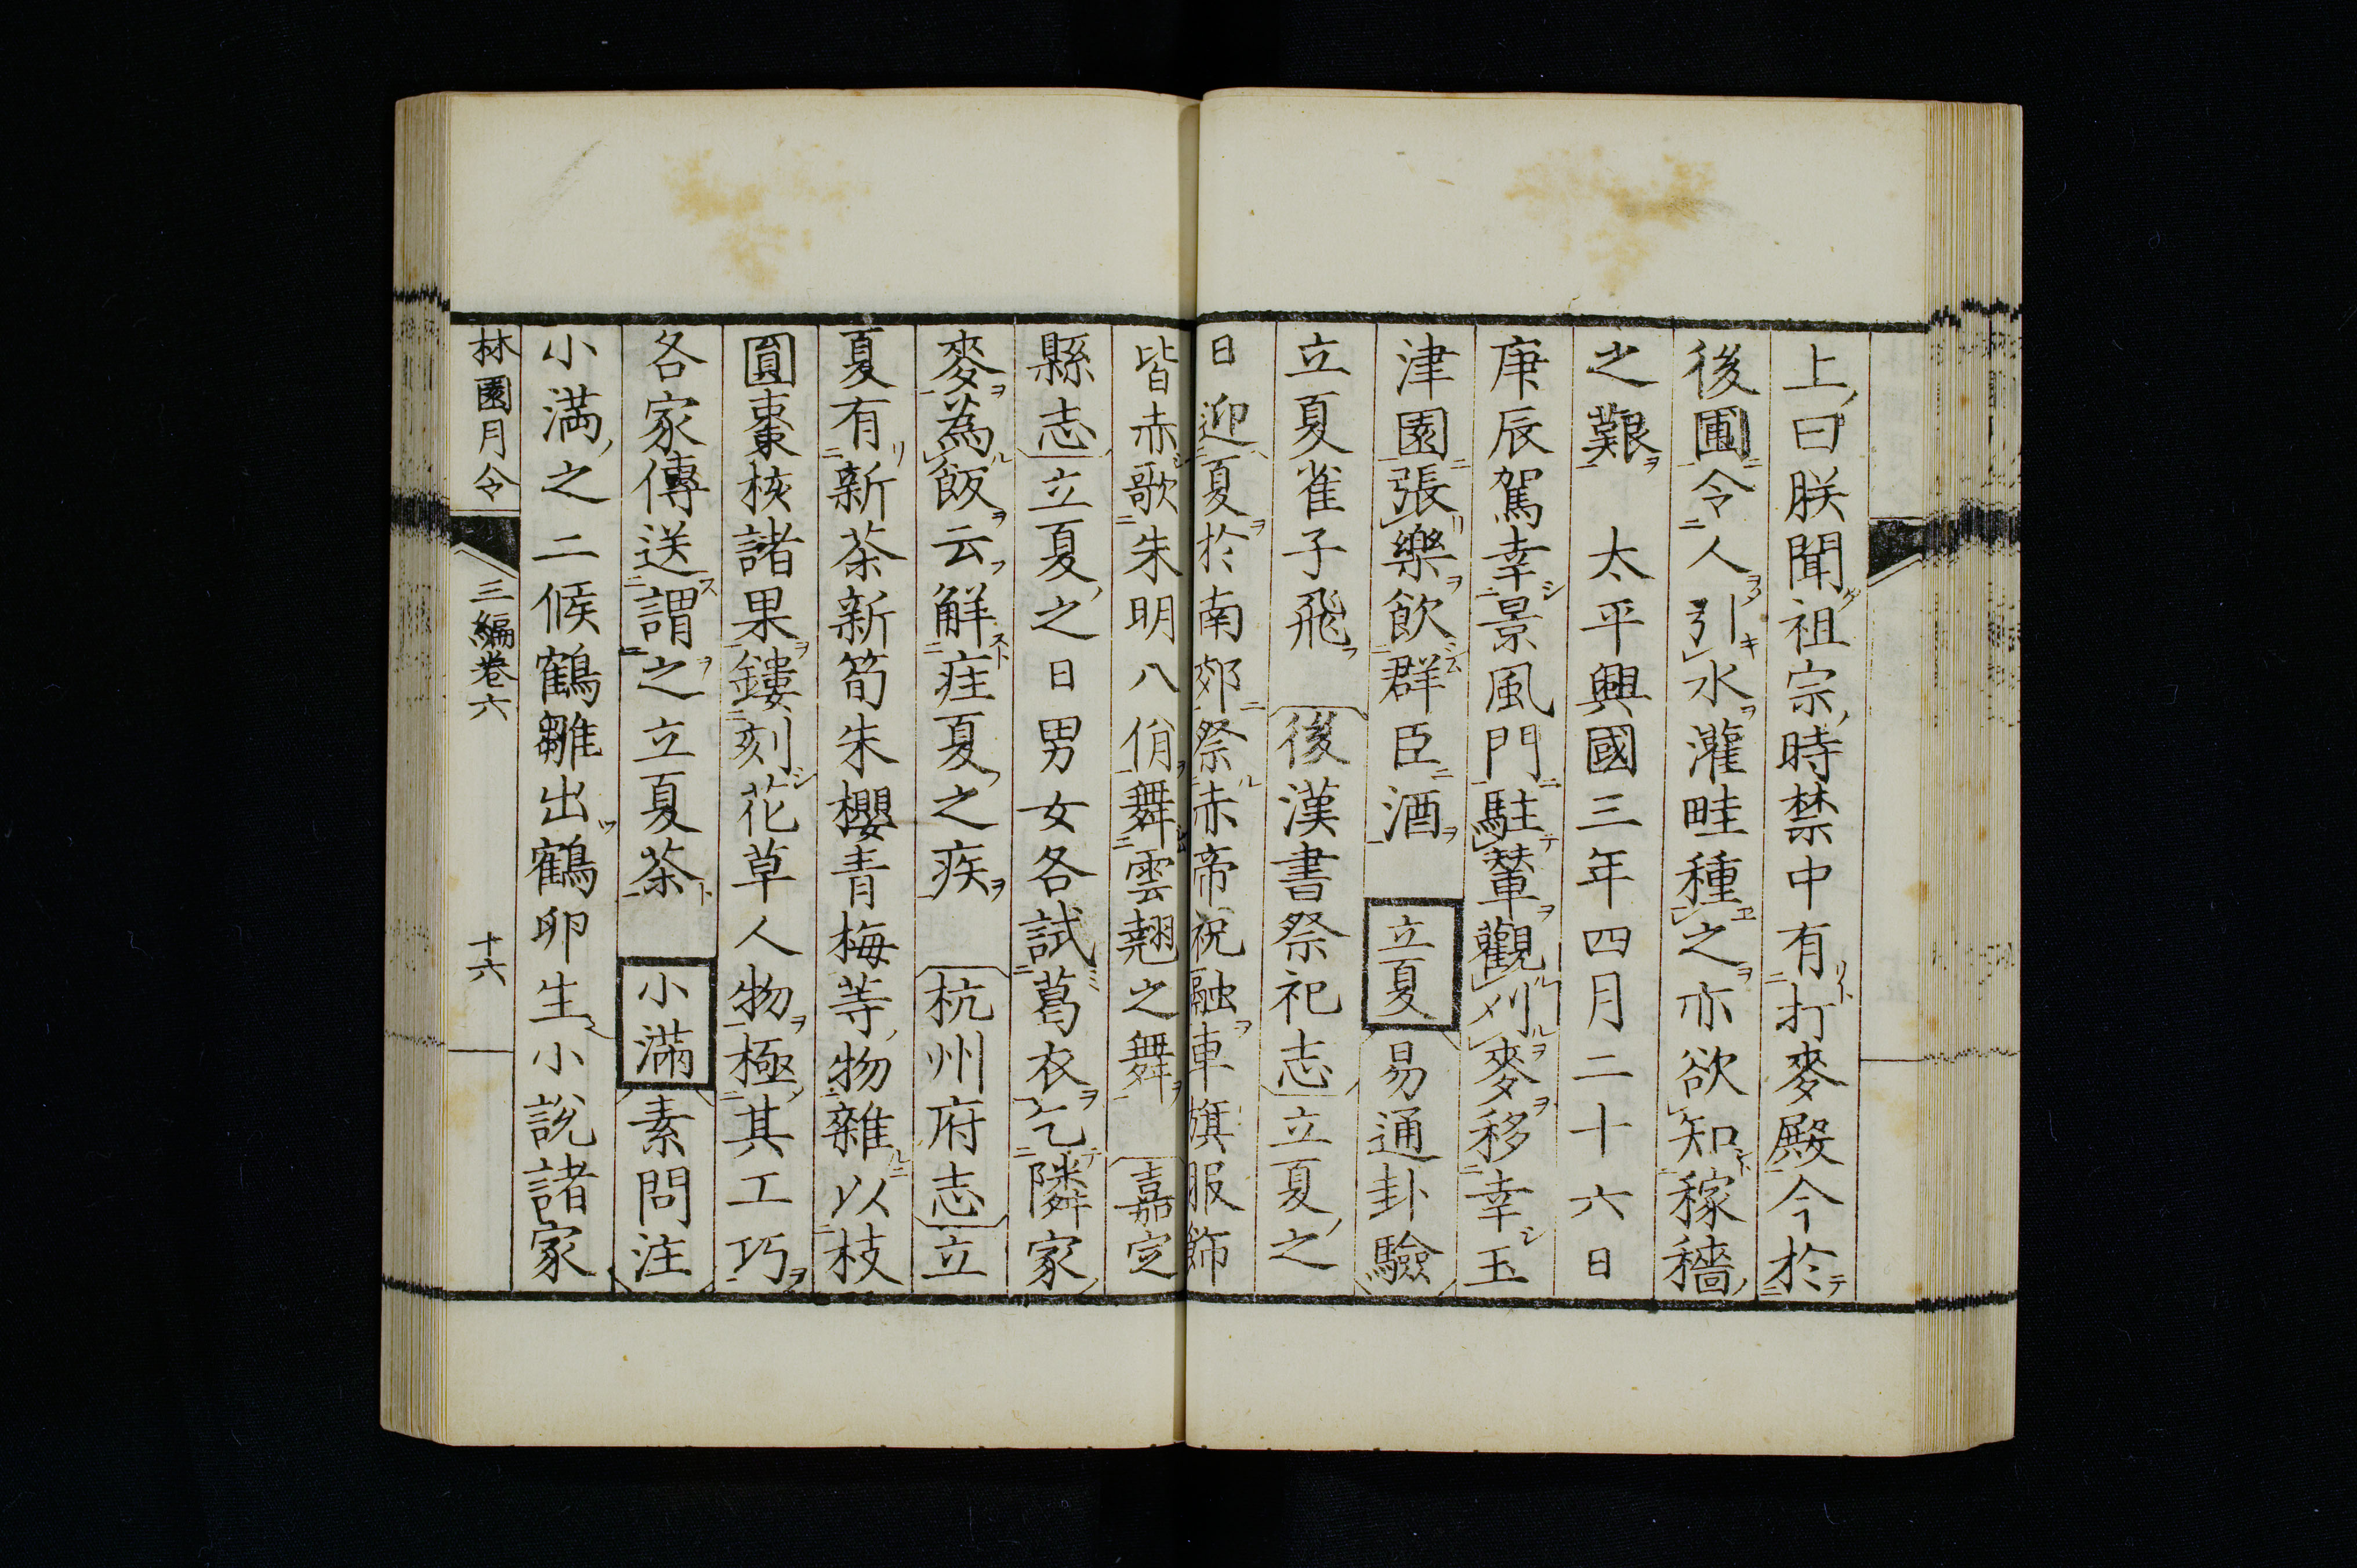 上曰朕聞祖宗時禁中有打麥殿今於
後圃令人引水灌畦種之亦欲知稼穡
之艱　太平興國三年四月二十六日
庚辰駕幸景風門駐輦觀刈麥移幸玉
津園張樂飲群臣酒　立夏　易通卦驗
立夏雀子飛　後漢書祭祀志立夏之
日迎夏於南郊祭赤帝祝融車旗服飾
皆赤歌朱明八佾舞雲翹之舞　嘉定
縣志立夏之日男女各試葛衣乞隣家
麥為飯云解疰夏之疾　杭州府志立
夏有新茶新筍朱櫻青梅等物雜以枝
圓棗核諸果鏤刻花草人物極其工巧
各家傳送謂之立夏茶　小滿　素問注
小満之二候鶴雛出鶴卵生小説諸家
林園月令　三編卷六　十六